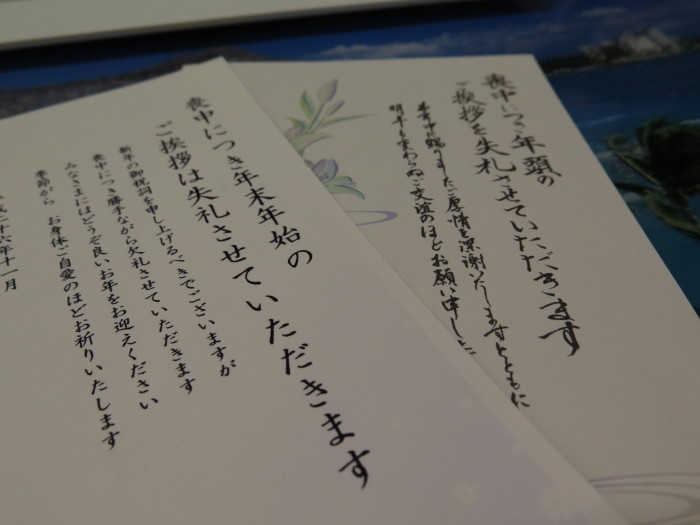 喪中につき年末年始の
ご挨拶は失礼させていただきます
新年の御祝詞を申し上げるべきでございますが
喪中につき勝手ながら欠礼させていただきます
みなさまにはどうぞ良いお年をお迎えください
季節から お身体ご自愛のほどお祈りいたします
二十六年十一月
喪中につき年頭の
ご挨拶を失礼させていただきます
本年中に賜りましたご厚情を深謝いたしますとともに
明年も変わらぬご交誼のほどお願い申し